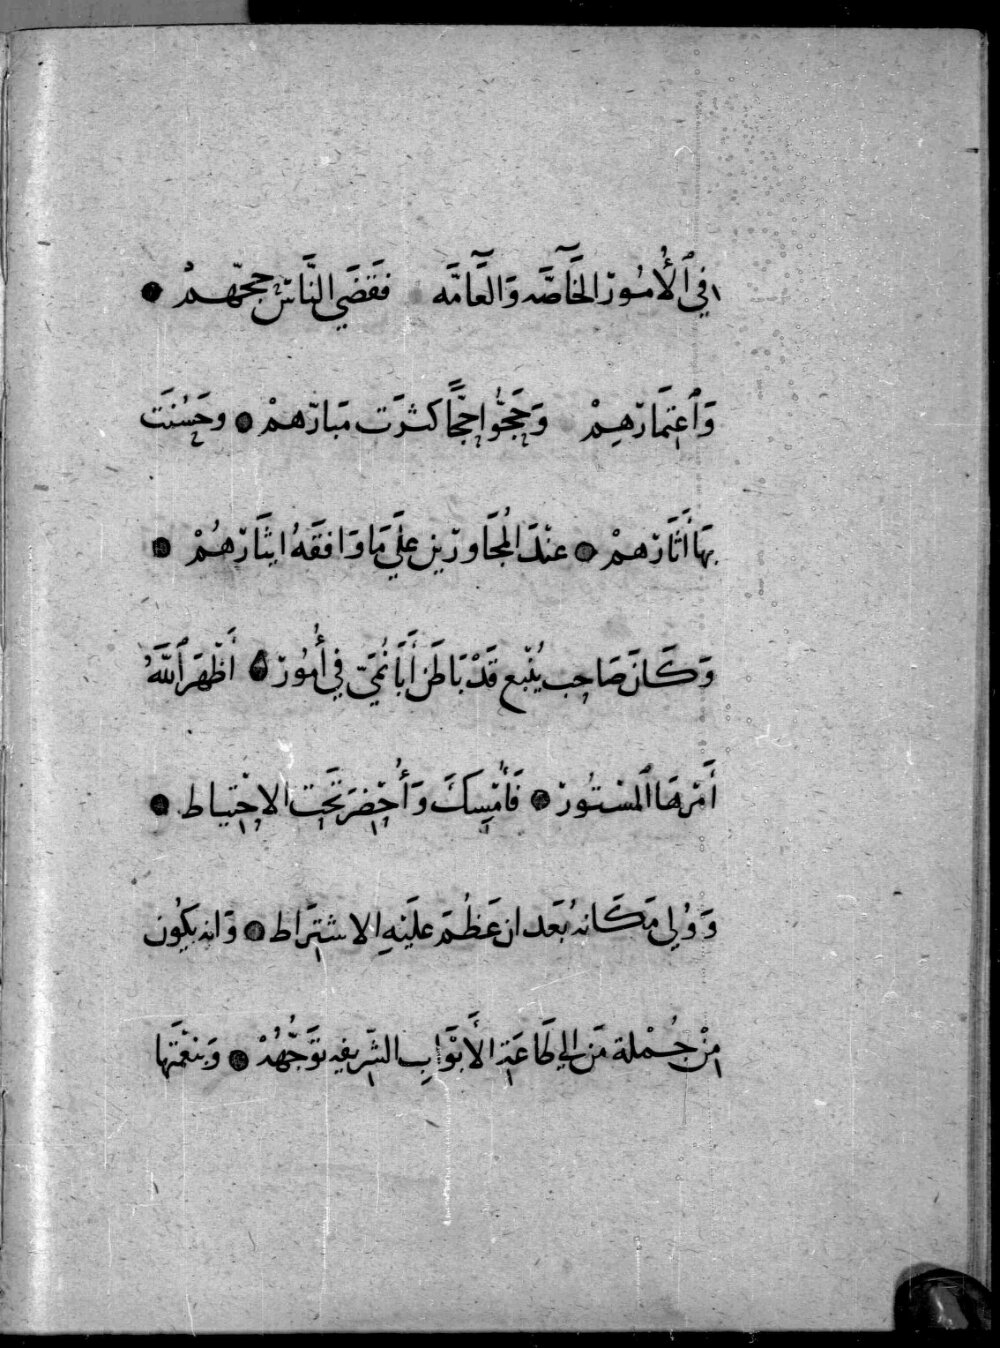 في ٱلْأُمُور الخَاصَّه وَالعَامَّه فَقَضَي النَّاس حجّهمْ ●
وَٱعتِمَارهِمْ وَحَجّوُا حجًّا كثرَت مَبارّهمْ ● وحَسُنَت
بهَا أثَارهمْ ● عنْدَ المُجَاورين علَي مَا وَافقَهُ ايثَارهُمْ ●
وَكَانَ صَاحِب يُنْبع قَدْ بَاطَنَ أَبَا نُمَيّ في أُمُور ● أَظْهَرَ ٱللَّهُ
أَمْرهَا ٱلمسْتُور ● فَأُمْسِكَ وَأُحْضِرَ تَحْت الاحْتِياط ●
وَوُلِي مَكَانهُ بُعَد ان عَظُمَ علَيْهِ الاشتِرَاط ● وَانه يَكُون
مِنْ جُمْلة مَن الي طَاعَةِ الأَبْوَابِ الشّرِيفه تَوَجُّهُهُ ● وَبنعْمَتها